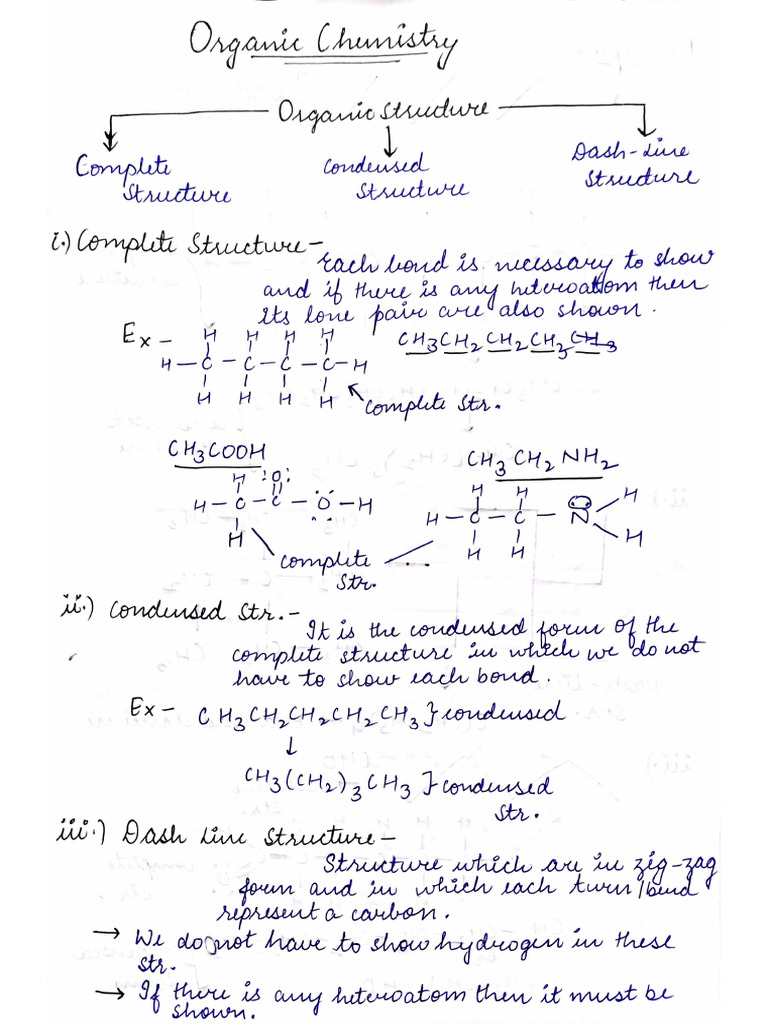 Organic Chemistry
Organic Structure
Complete Structure
Condensed Structure
Dash-Line Structure
i.) Complete Structure-
Each bond is necessary to show
and if there is any heteroatom then
Its lone pair are also shown.
Ex -
H H H H
H - C - C - C - C - H
H H H H
CH3CH2CH2CH2CH3
Complete Str.
CH3COOH
H :O:
H - C - C - O - H
H
CH3CH2NH2
H H
H - C - C - N
H H
H
H
Complete
Str.
ii.) Condensed Str.-
It is the condensed form of the
complete structure in which we do not
have to show each bond.
Ex - CH3CH2CH2CH2CH3 } condensed
↓
CH3(CH2)3CH3 } condensed
Str.
iii.) Dash Line Structure-
Structure which are in zig-zag
form and in which each turn/bend
represent a carbon.
→ We do not have to show hydrogen in these
str.
→ If there is any heteroatom then it must be
shown.